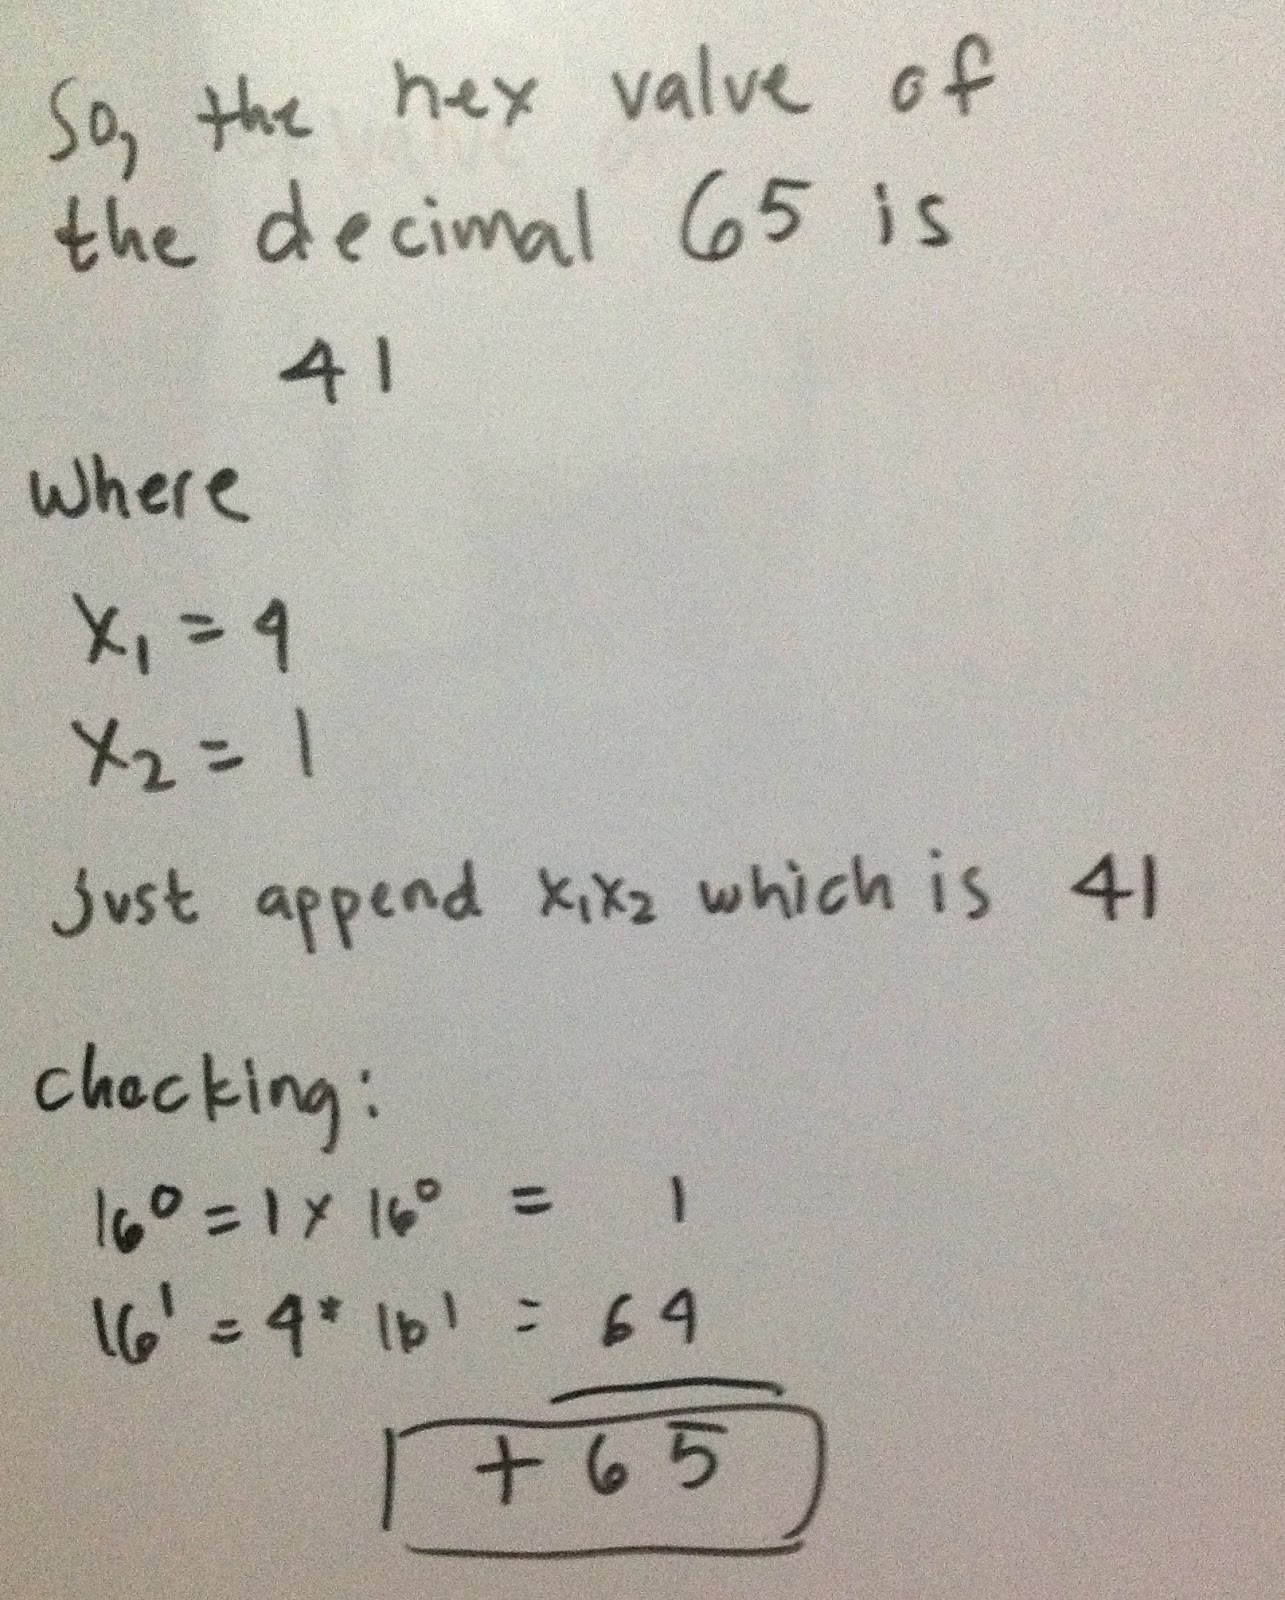 So, the hex value of
the decimal 65 is
41
where
X₁ = 4
X₂ = 1
just append x₁x₂ which is 41
checking:
16⁰ = 1 x 16⁰ = 1
16¹ = 4 * 16¹ = 64
+ 65